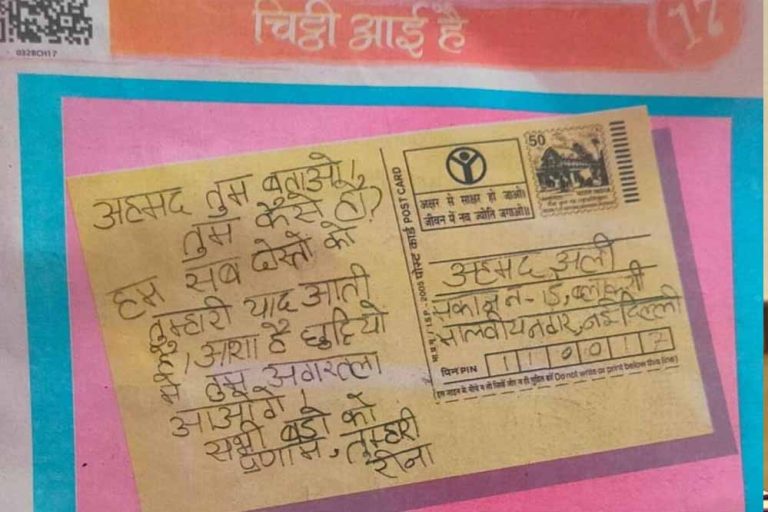 0328CH17
चिट्ठी आई है
17
अहमद तुम बताओ!
तुम कैसे हो?
हम सब दोस्तों को
तुम्हारी याद आती
है। आशा है छुट्टियों
में तुम अगरतला
आओगे।
सभी बड़ो को
प्रणाम,
तुम्हारी
रीना
पोस्ट कार्ड POST CARD
अक्षर से साक्षर हो जाओ।
जीवन में नव ज्योति जगाओ॥
50
अहमद अली
मकान न-
मालवीय नगर, नई दिल्ली
पिन PIN 110017
इस लाइन के नीचे न तो लिखें और न ही मुद्रित करें (Do not write or print below this line)